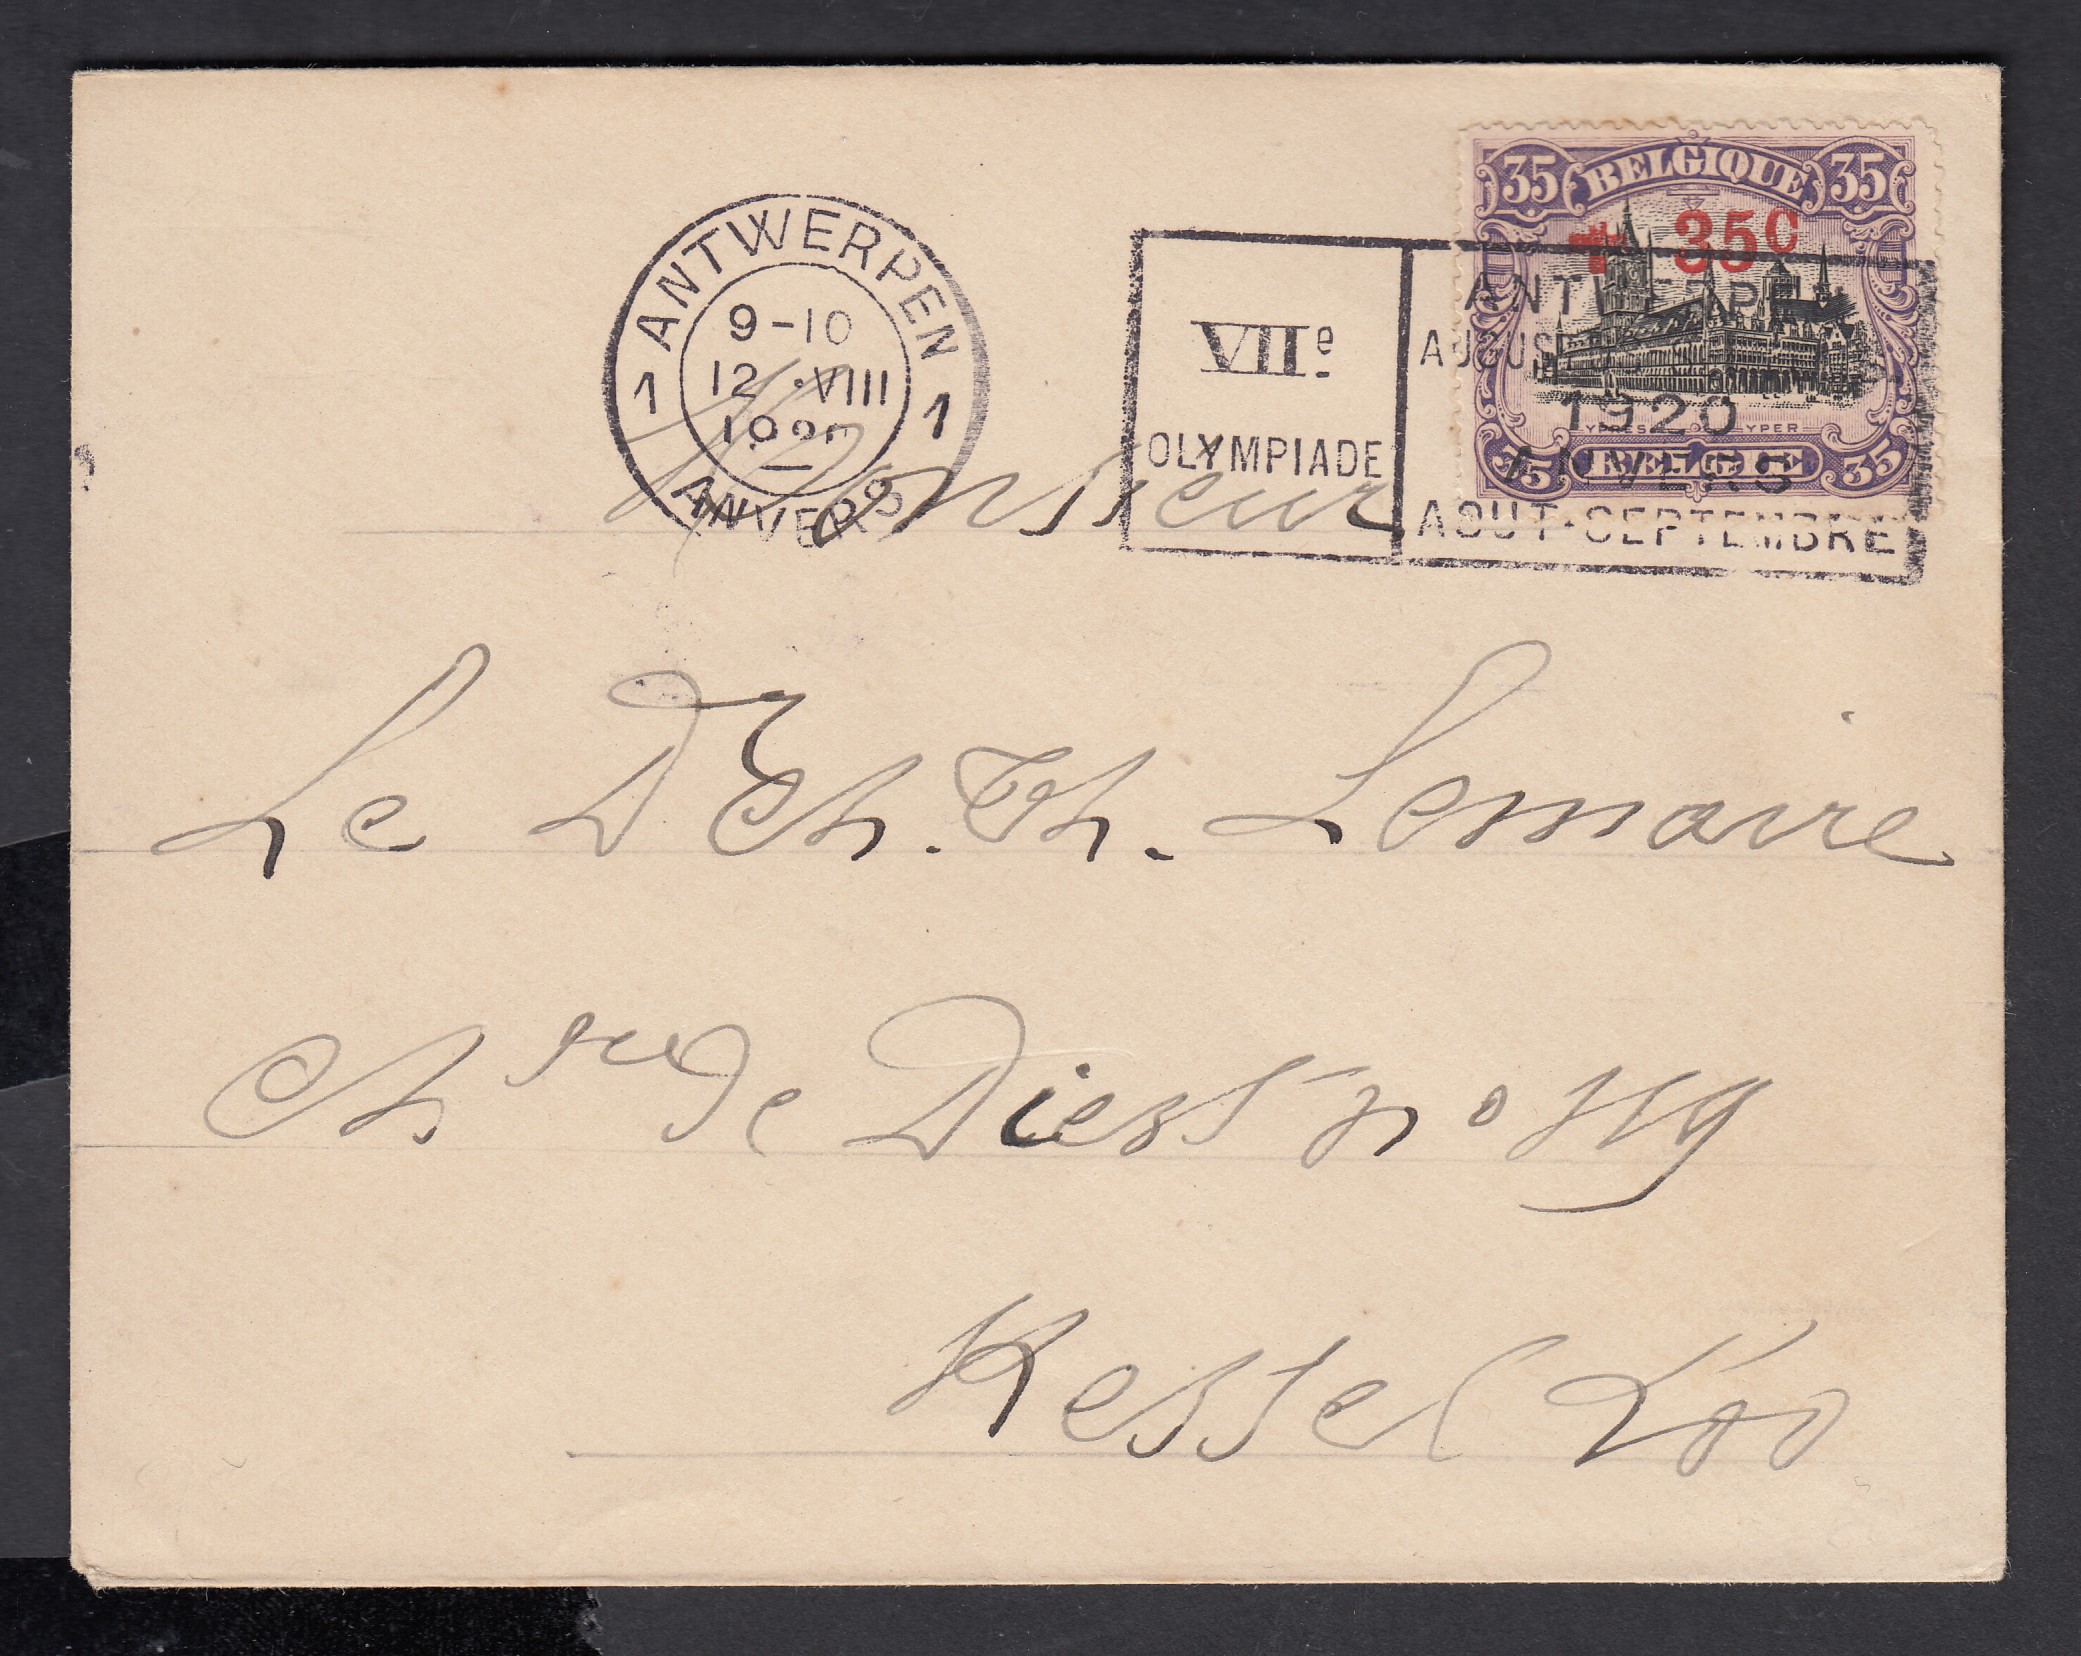 35 BELGIQUE 35
+ 35c
YPRES YPER
35 BELGIË 35
ANTWERPEN
1 9-10 1
12 •VIII
1920
ANVERS
VIIe
OLYMPIADE
ANTWERPEN
AUGUST
1920
ANVERS
AOUT-SEPTEMBRE
Monsieur
Le Dr Ch. Th. Lemaire
Chée de Diest no
Kessel Loo